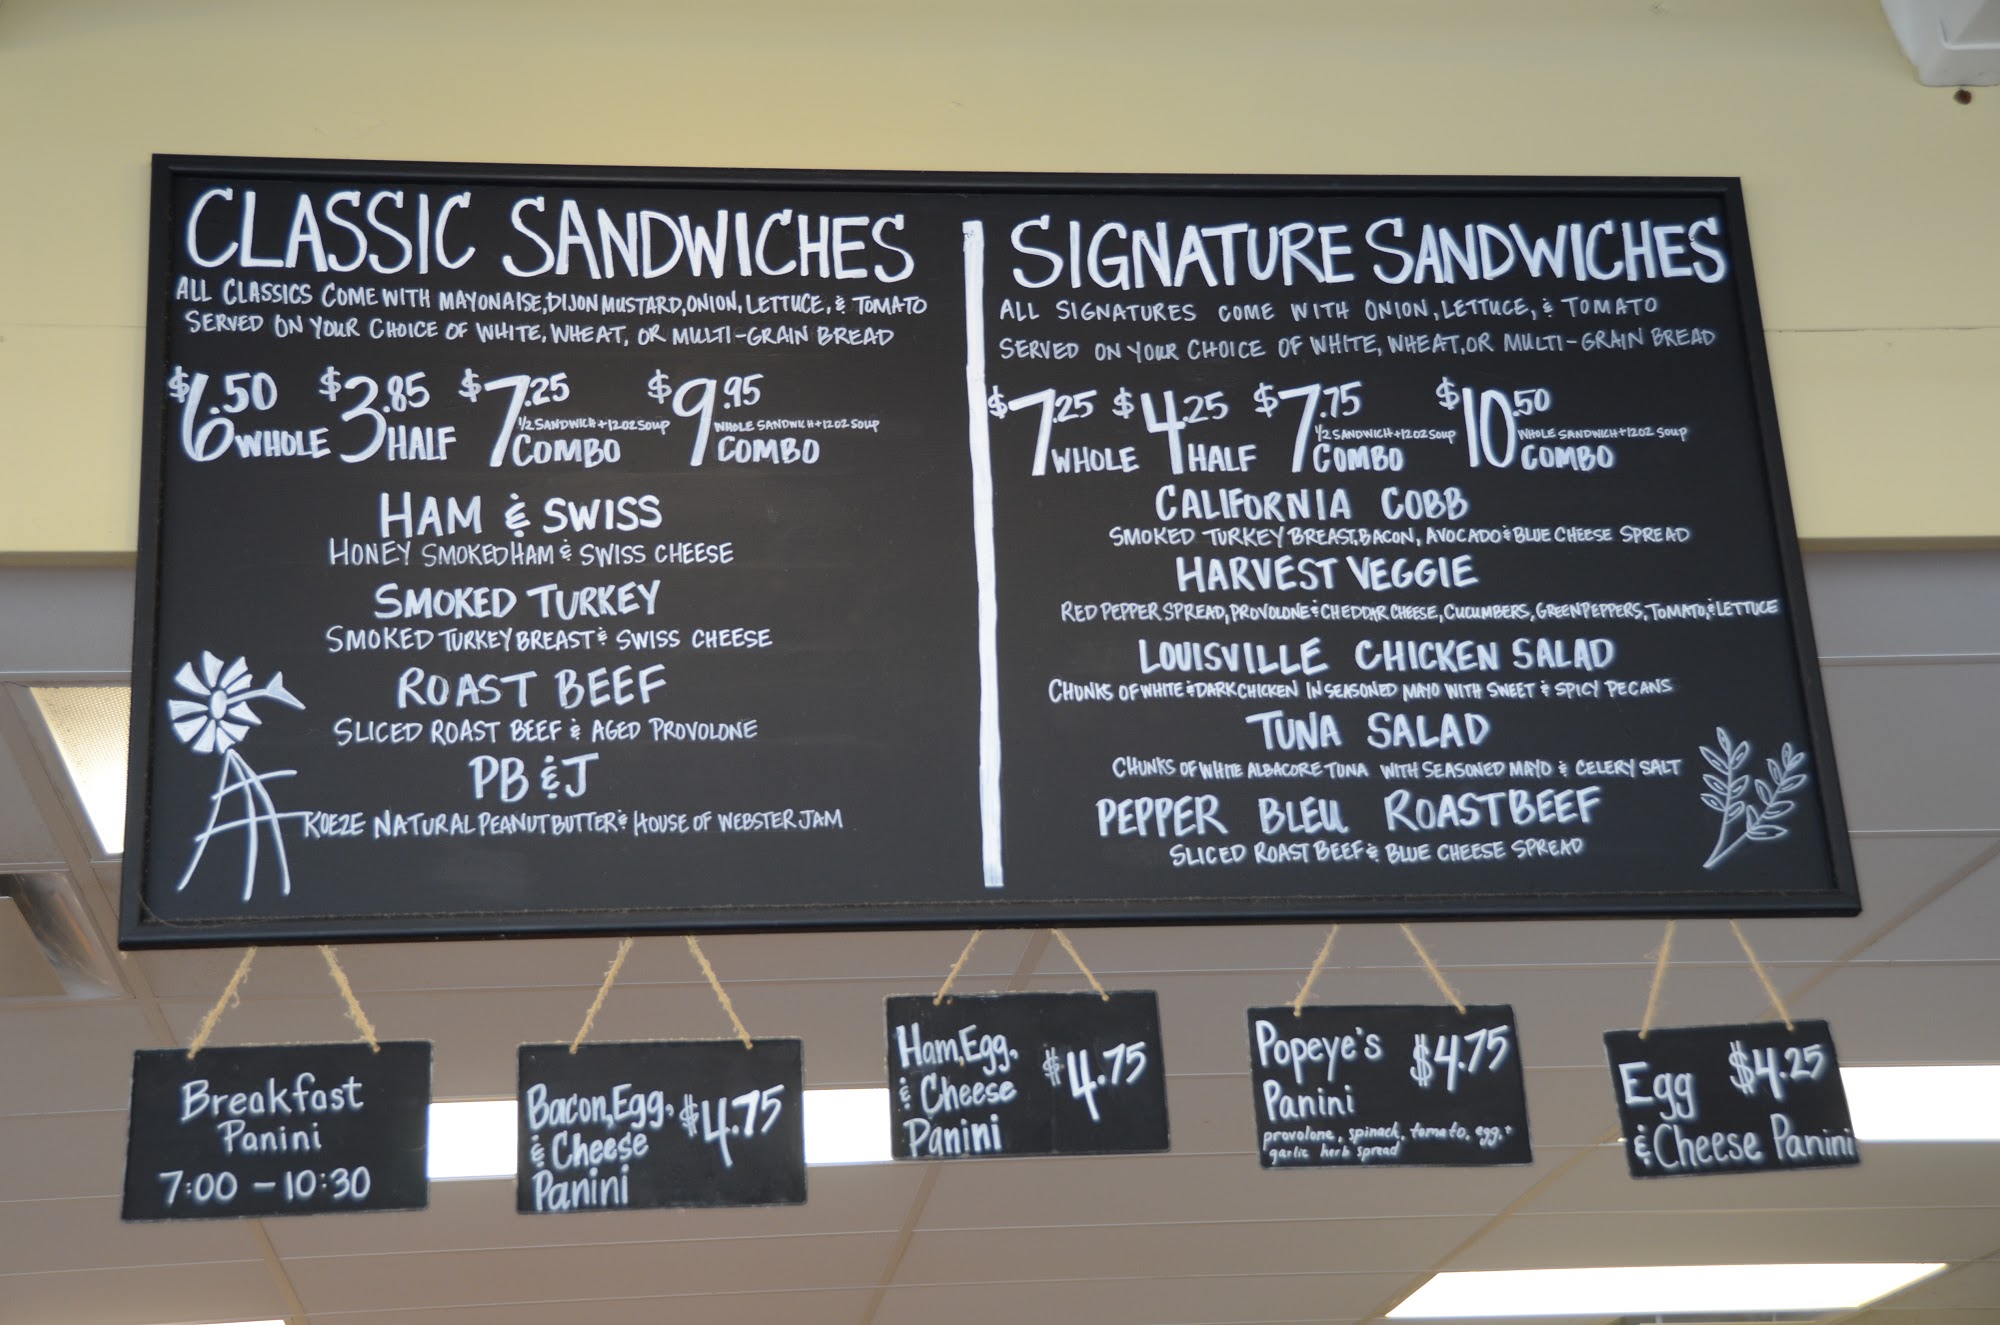 CLASSIC SANDWICHES
ALL CLASSICS COME WITH MAYONAISE, DIJON MUSTARD, ONION, LETTUCE, & TOMATO
SERVED ON YOUR CHOICE OF WHITE, WHEAT, OR MULTI-GRAIN BREAD
$6.50 WHOLE $3.85 HALF $7.25 1/2 SANDWICH + 12 OZ SOUP COMBO $9.95 WHOLE SANDWICH + 12 OZ SOUP COMBO
HAM & SWISS
HONEY SMOKED HAM & SWISS CHEESE
SMOKED TURKEY
SMOKED TURKEY BREAST & SWISS CHEESE
ROAST BEEF
SLICED ROAST BEEF & AGED PROVOLONE
PB & J
KOEZE NATURAL PEANUT BUTTER & HOUSE OF WEBSTER JAM
SIGNATURE SANDWICHES
ALL SIGNATURES COME WITH ONION, LETTUCE, & TOMATO
SERVED ON YOUR CHOICE OF WHITE, WHEAT, OR MULTI-GRAIN BREAD
$7.25 WHOLE $4.25 HALF $7.75 1/2 SANDWICH + 12 OZ SOUP COMBO $10.50 WHOLE SANDWICH + 12 OZ SOUP COMBO
CALIFORNIA COBB
SMOKED TURKEY BREAST, BACON, AVOCADO & BLUE CHEESE SPREAD
HARVEST VEGGIE
RED PEPPER SPREAD, PROVOLONE & CHEDDAR CHEESE, CUCUMBERS, GREEN PEPPERS, TOMATO, & LETTUCE
LOUISVILLE CHICKEN SALAD
CHUNKS OF WHITE & DARK CHICKEN IN SEASONED MAYO WITH SWEET & SPICY PECANS
TUNA SALAD
CHUNKS OF WHITE ALBACORE TUNA WITH SEASONED MAYO & CELERY SALT
PEPPER BLEU ROAST BEEF
SLICED ROAST BEEF & BLUE CHEESE SPREAD
Breakfast
Panini
7:00 - 10:30
Bacon, Egg,
& Cheese
Panini
$4.75
Ham, Egg,
& Cheese
Panini
$4.75
Popeye's
Panini
$4.75
provolone, spinach, tomato, egg, +
garlic herb spread
Egg
& Cheese Panini
$4.25